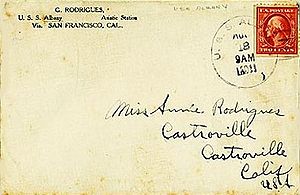 G. RODRIGUES,
U. S. S. Albany Asiatic Station
Via. SAN FRANCISCO, CAL.
USS ALBANY
U. S. S. AL
18
9AM
U.S. POSTAGE
TWO CENTS
Miss Annie Rodrigues
Castroville
Castroville
Calif
USA